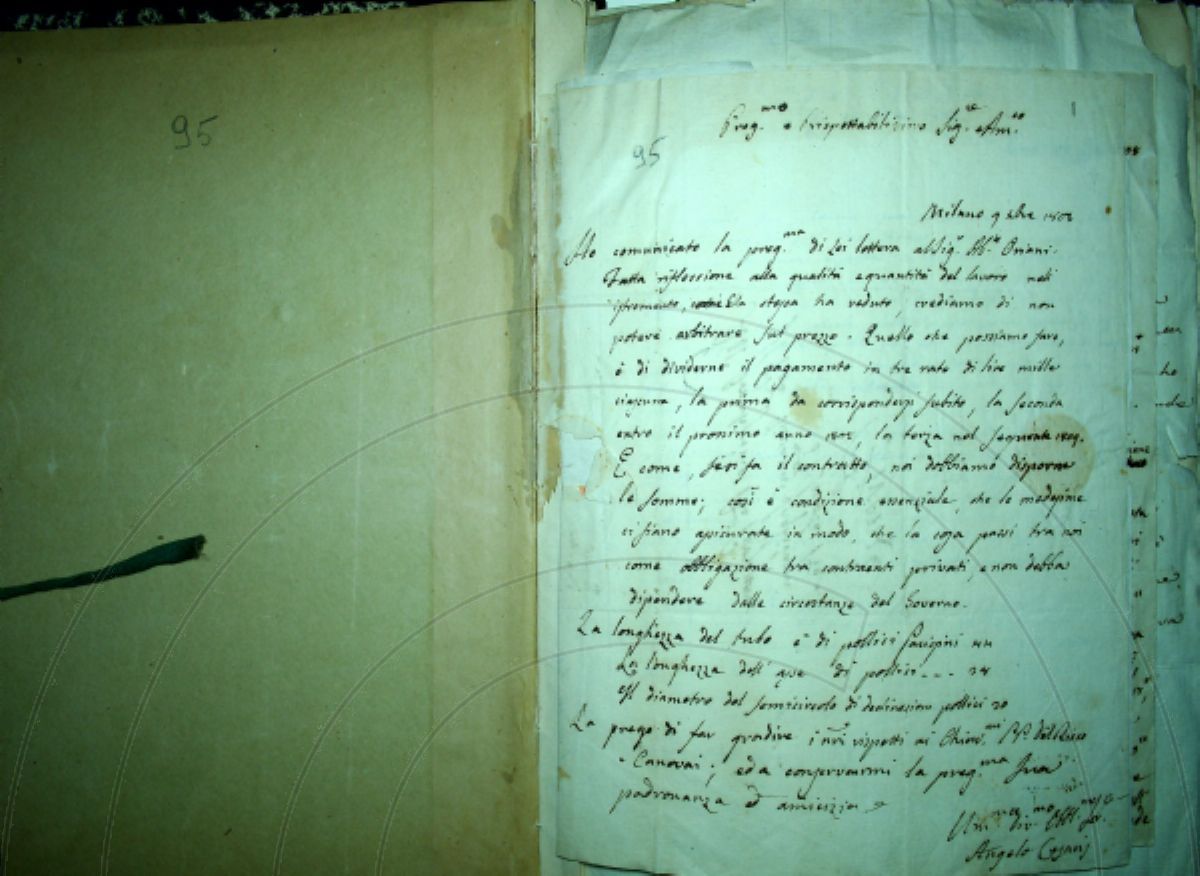 95
Preg.mo e Prispettabilissimo Sig.re e Am.co
95
1
Milano 9 xbre 1802
Ho comunicato la preg.ma di Lei lettera al Sig.r Ab.e Oriani.
Fatta riflessione alla qualità e quantità del lavoro nell
istrumento, Ella stessa ha veduto, crediamo di non
potere arbitrare sul prezzo. Quello che possiamo fare,
è di dividerne il pagamento in tre rate di lire mille
ciascuna, la prima da corrispondersi subito, la seconda
entro il prossimo anno, la terza nel seguente
E come, se si fa il contratto, noi dobbiamo disporre
le somme; così è condizione essenziale, che le medesime
ci siano assicurate in modo, che la cosa passi tra noi
come obbligazione tra contraenti privati, e non debba
dipendere dalle circostanze del Governo.
La longhezza del tubo è di pollici Parigini
La longhezza dell' asse di pollici - - -
Il diametro del semicircolo di declinazioni pollici 20
La prego di far gradire i nri rispetti ai Chiar.mi PP. Del Ricco
e Canovai; ed a conservarmi la preg.ma Sua
padronanza ed amicizia
Angelo Cesaris